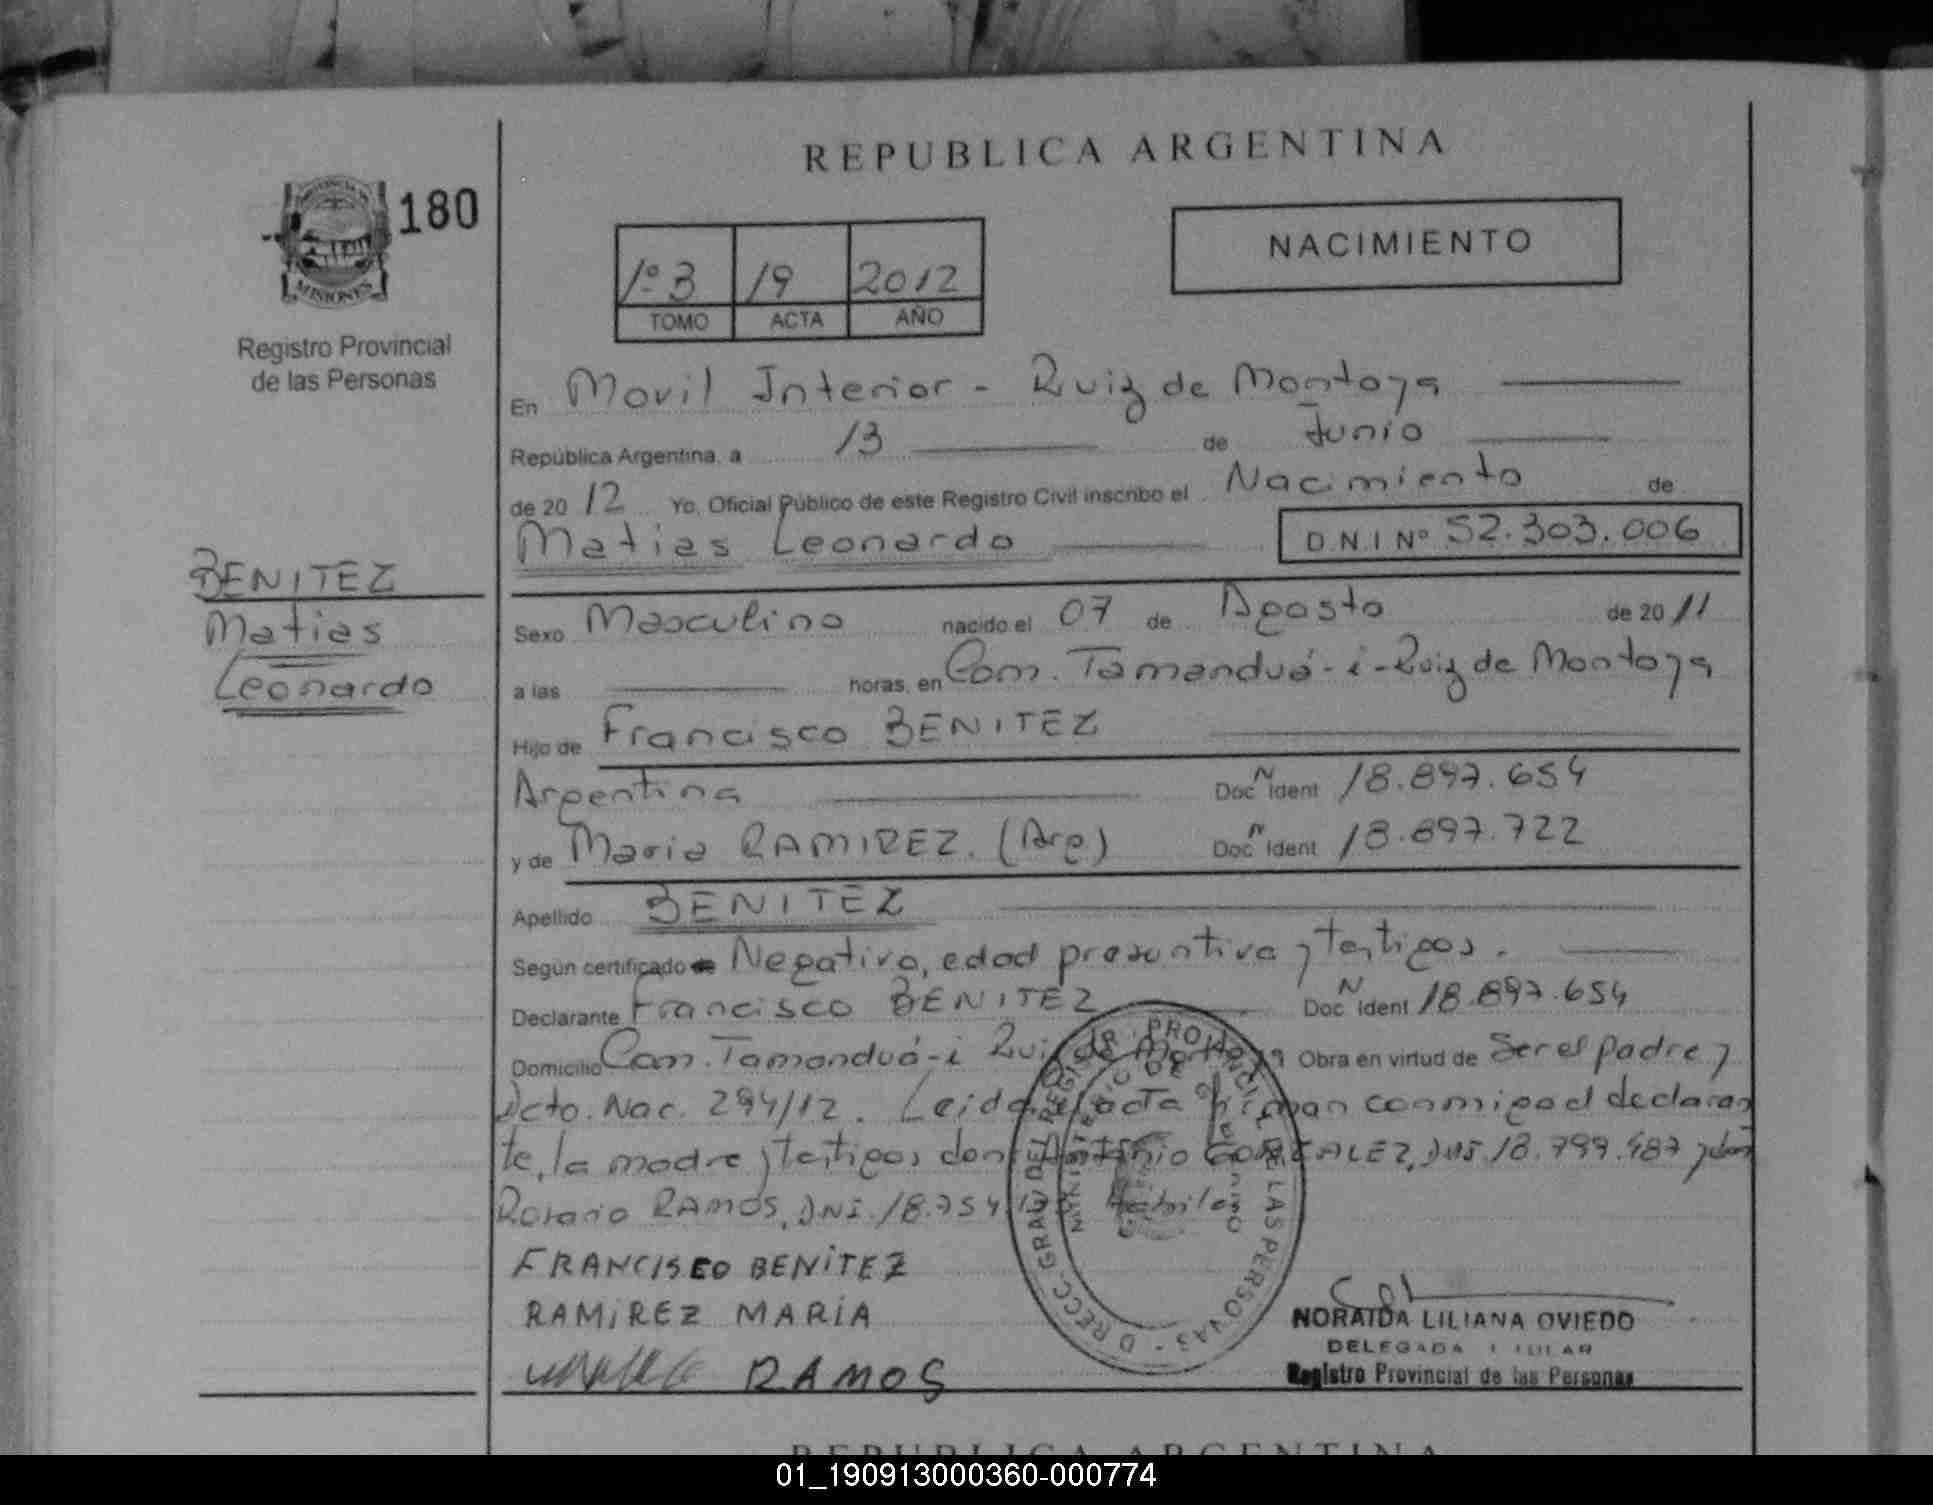 REPUBLICA ARGENTINA
PROVINCIA DE
MISIONES
180
Registro Provincial
de las Personas
1º 3 19 2012
TOMO ACTA AÑO
NACIMIENTO
En Movil Interior - Ruiz de Montoya
República Argentina, a 13 de Junio
de 2012 Yo, Oficial Público de este Registro Civil inscribo el Nacimiento de
Matias Leonardo D.N.I Nº 52.303.006
BENITEZ
Matias
Leonardo
Sexo Masculino nacido el 07 de Agosto de 2011
a las horas, en Com. Tamanduá-i-Ruiz de Montoya
Hijo de Francisco BENITEZ
Argentina Doc N Ident 18.897.654
y de Maria RAMIREZ. (Arg) Doc N Ident 18.897.722
Apellido BENITEZ
Según certificado Negativo, edad presuntiva y testigos.
Declarante Francisco BENITEZ Doc N Ident 18.897.654
Domicilio Com. Tamanduá-i Ruiz de Montoya Obra en virtud de Ser el padre y
Dcto. Nac. 294/12. Leida el acta firman conmigo el declaran
te, la madre y testigos don Antonio GONZALEZ, DNI 18.799.487 y don
Rosario RAMOS, DNI. 18.754. Habiles
FRANCISCO BENITEZ
RAMIREZ MARIA
RAMOS
DIRECC. GRAL DEL REGISTR. PROVINCIAL DE LAS PERSONAS
MINISTERIO DE GOBIERNO
NORAIDA LILIANA OVIEDO
DELEGADA TITULAR
Registro Provincial de las Personas
REPUBLICA ARGENTINA
01_190913000360-000774